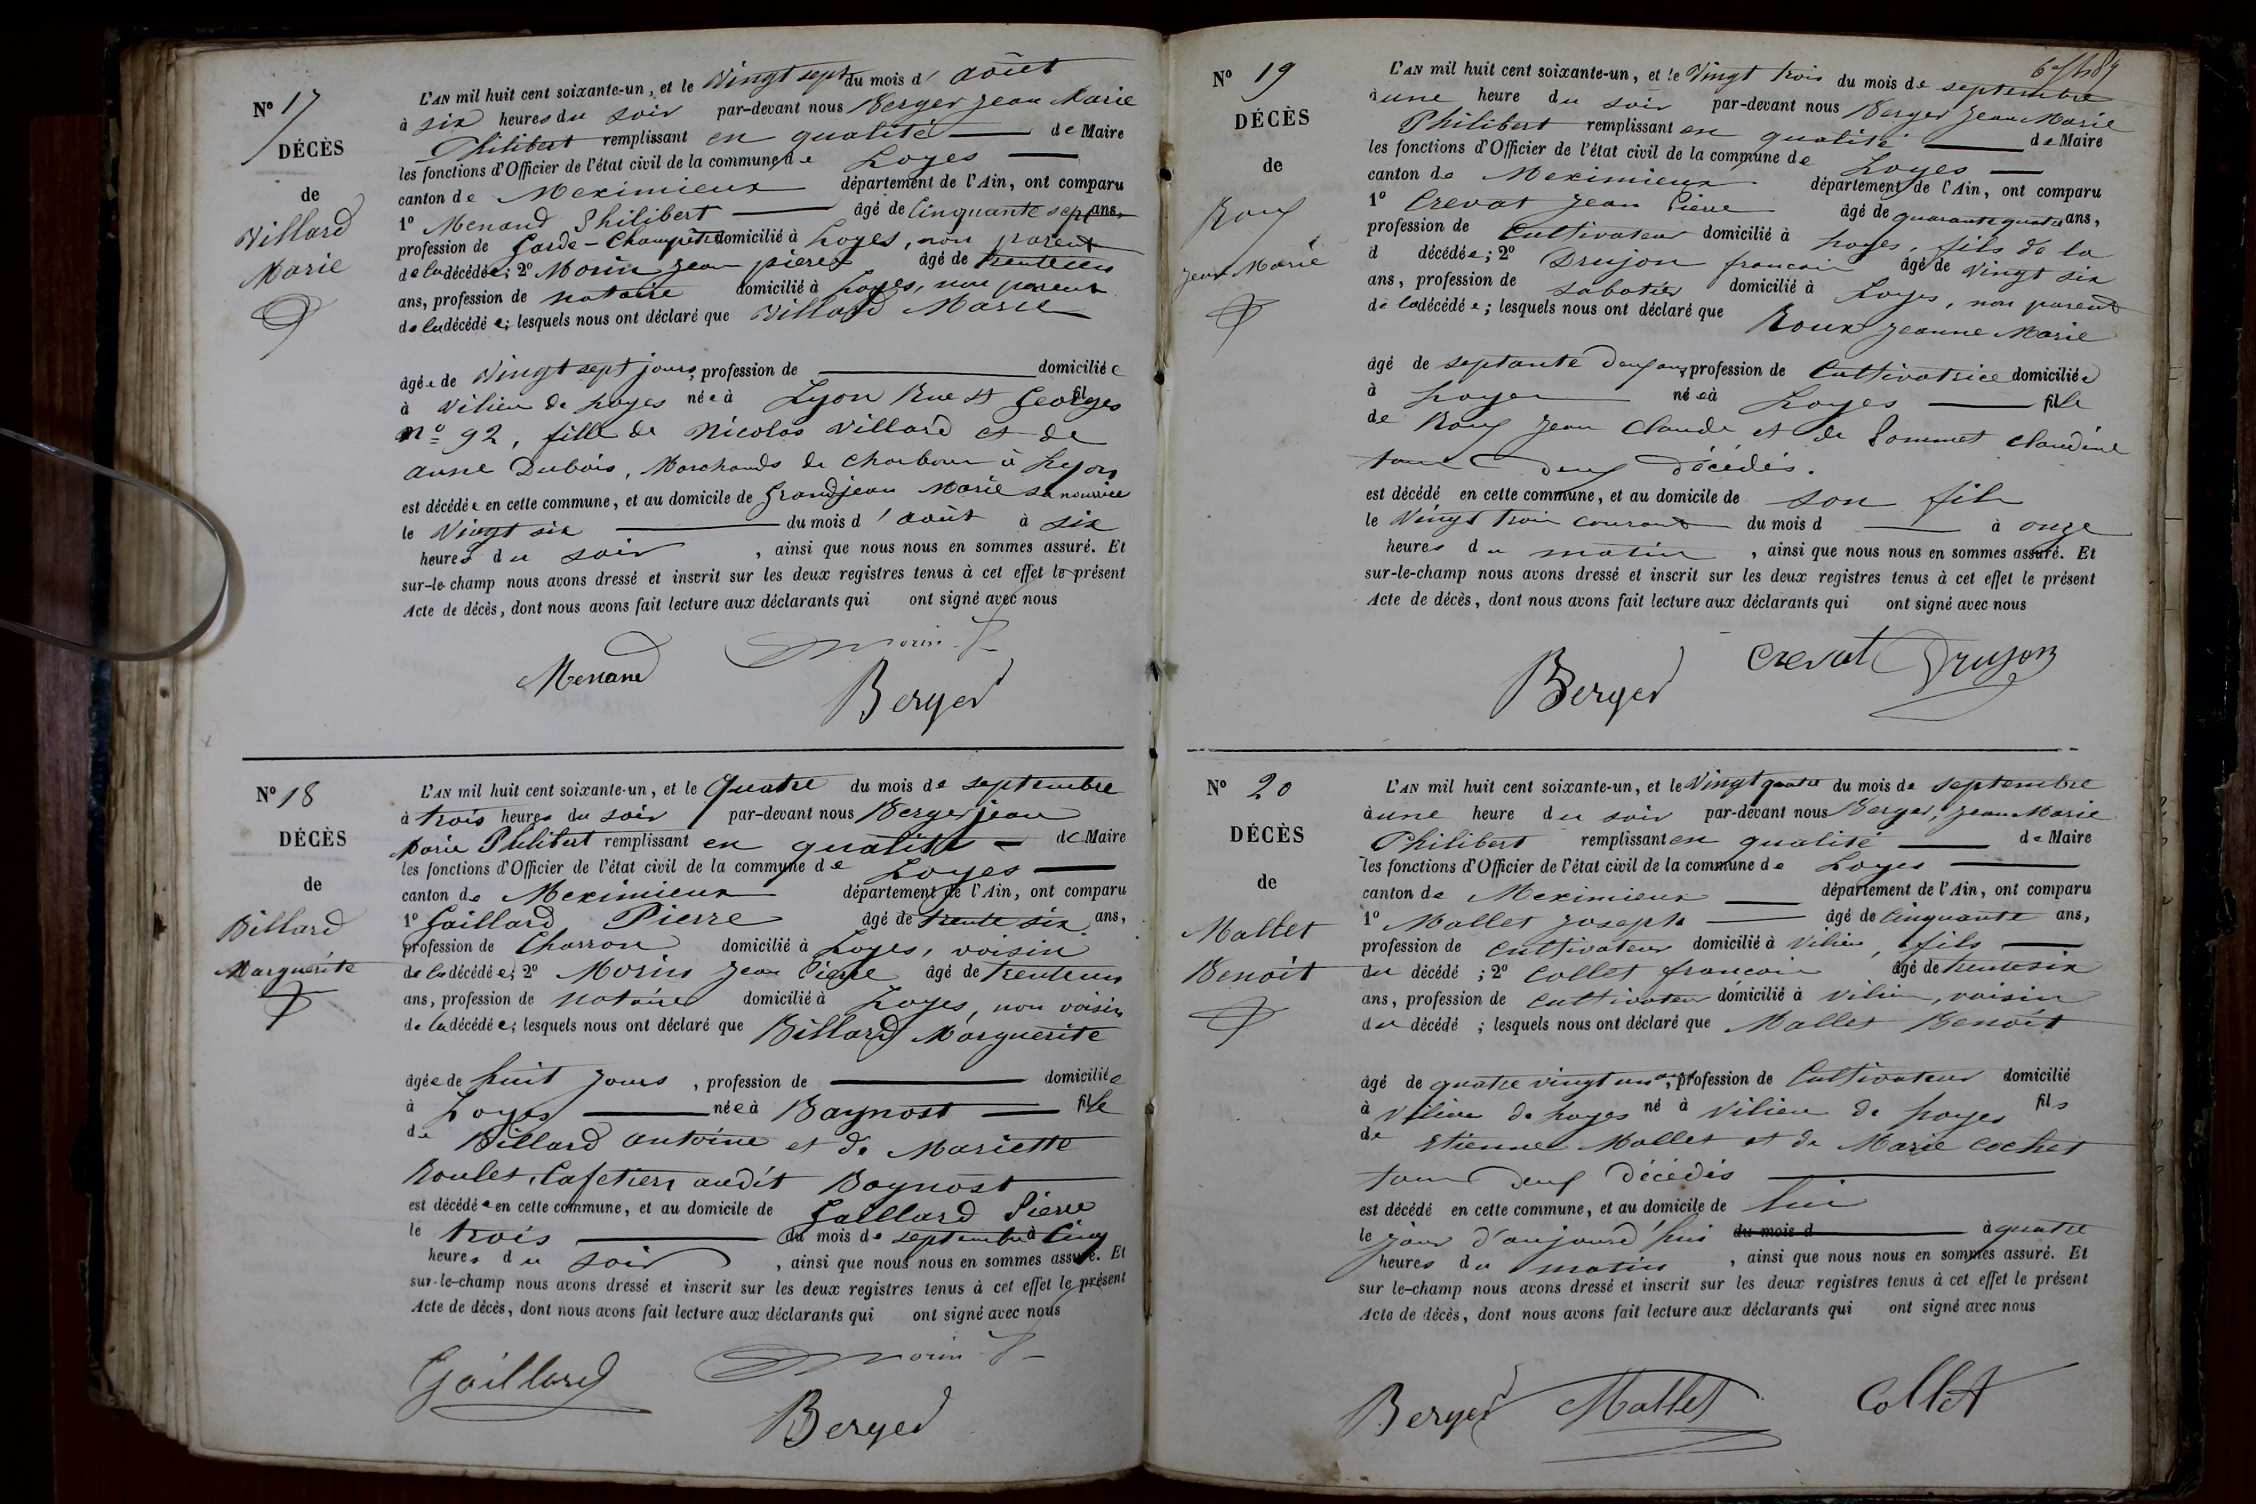 N° 17
DÉCÈS
de
Villard
Marie
L'AN mil huit cent soixante-un, et le Vingt sept du mois d'août
à six heures du soir par-devant nous Berger Jean Marie
Philibert remplissant en qualité de Maire
les fonctions d'Officier de l'état civil de la commune de Loyes
canton de Meximieux département de l'Ain, ont comparu
1° Menand Philibert âgé de Cinquante sept ans,
profession de Garde-Champêtre domicilié à Loyes, non parent
de la décédée; 2° Morin Jean pierre âgé de trente un
ans, profession de notaire domicilié à Loyes, non parent
de la décédée; lesquels nous ont déclaré que Villard Marie
âgée de Vingt sept jours, profession de domiciliée
à Vilieu de Loyes née à Lyon Rue St Georges fil
n° 92, fille de Nicolas Villard et de
anne Dubois, Marchands de Charbon à Lyon
est décédée en cette commune, et au domicile de Grandjean Marie sa nourrice
le Vingt six du mois d'août à six
heures du soir, ainsi que nous nous en sommes assuré. Et
sur-le-champ nous avons dressé et inscrit sur les deux registres tenus à cet effet le présent
Acte de décès, dont nous avons fait lecture aux déclarants qui ont signé avec nous
Menand Morin
Berger
N° 18
DÉCÈS
de
Billard
Marguerite
L'AN mil huit cent soixante-un, et le Quatre du mois de septembre
à trois heures du soir par-devant nous Berger jean
Marie Philibert remplissant en qualité de Maire
les fonctions d'Officier de l'état civil de la commune de Loyes
canton de Meximieux département de l'Ain, ont comparu
1° Gaillard Pierre âgé de trente six ans,
profession de Charron domicilié à Loyes, voisin
de la décédée; 2° Morin Jean Pierre âgé de trente un
ans, profession de notaire domicilié à Loyes, non voisin
de la décédée; lesquels nous ont déclaré que Billard Marguerite
âgée de huit jours, profession de domiciliée
à Loyes née à Baynost fille
de Billard antoine et de Mariette
Roulet, Cafetiers audit Baynost
est décédée en cette commune, et au domicile de Gaillard Pierre
le trois du mois de septembre à Cinq
heures du soir, ainsi que nous nous en sommes assuré. Et
sur-le-champ nous avons dressé et inscrit sur les deux registres tenus à cet effet le présent
Acte de décès, dont nous avons fait lecture aux déclarants qui ont signé avec nous
Gaillard Morin
Berger
N° 19
DÉCÈS
de
Roux
Jeanne Marie
L'AN mil huit cent soixante-un, et le Vingt trois du mois de septembre
à une heure du soir par-devant nous Berger Jean Marie
Philibert remplissant en qualité de Maire
les fonctions d'Officier de l'état civil de la commune de Loyes
canton de Meximieux département de l'Ain, ont comparu
1° Crevat Jean Pierre âgé de quarante quatre ans,
profession de Cultivateur domicilié à Loyes, fils de la
d décédée; 2° Drujon francois âgé de Vingt six
ans, profession de Sabotier domicilié à Loyes, non parent
de la décédée; lesquels nous ont déclaré que Roux Jeanne Marie
âgé de septante deux ans, profession de Cultivatrice domiciliée
à Loyes née à Loyes fille
de Roux Jean Claude et de Pommet Claudine
tous deux décédés.
est décédé en cette commune, et au domicile de son fils
le Vingt trois courant du mois d à onze
heures du matin, ainsi que nous nous en sommes assuré. Et
sur-le-champ nous avons dressé et inscrit sur les deux registres tenus à cet effet le présent
Acte de décès, dont nous avons fait lecture aux déclarants qui ont signé avec nous
Crevat Drujon
Berger
N° 20
DÉCÈS
de
Mallet
Benoît
L'AN mil huit cent soixante-un, et le Vingt quatre du mois de septembre
à une heure du soir par-devant nous Berger, Jean Marie
Philibert remplissant en qualité de Maire
les fonctions d'Officier de l'état civil de la commune de Loyes
canton de Meximieux département de l'Ain, ont comparu
1° Mallet Joseph âgé de Cinquante ans,
profession de Cultivateur domicilié à Vilieu, fils
du décédé; 2° Collet francois âgé de trente six
ans, profession de Cultivateur domicilié à Vilieu, voisin
du décédé; lesquels nous ont déclaré que Mallet Benoît
âgé de quatre vingt un ans, profession de Cultivateur domicilié
à Vilieu de Loyes né à Vilieu de Loyes fils
de Etienne Mallet et de Marie Cochet
tous deux décédés
est décédé en cette commune, et au domicile de lui
le jour d'aujourd'hui du mois d à quatre
heures du matin, ainsi que nous nous en sommes assuré. Et
sur-le-champ nous avons dressé et inscrit sur les deux registres tenus à cet effet le présent
Acte de décès, dont nous avons fait lecture aux déclarants qui ont signé avec nous
Berger Mallet Collet